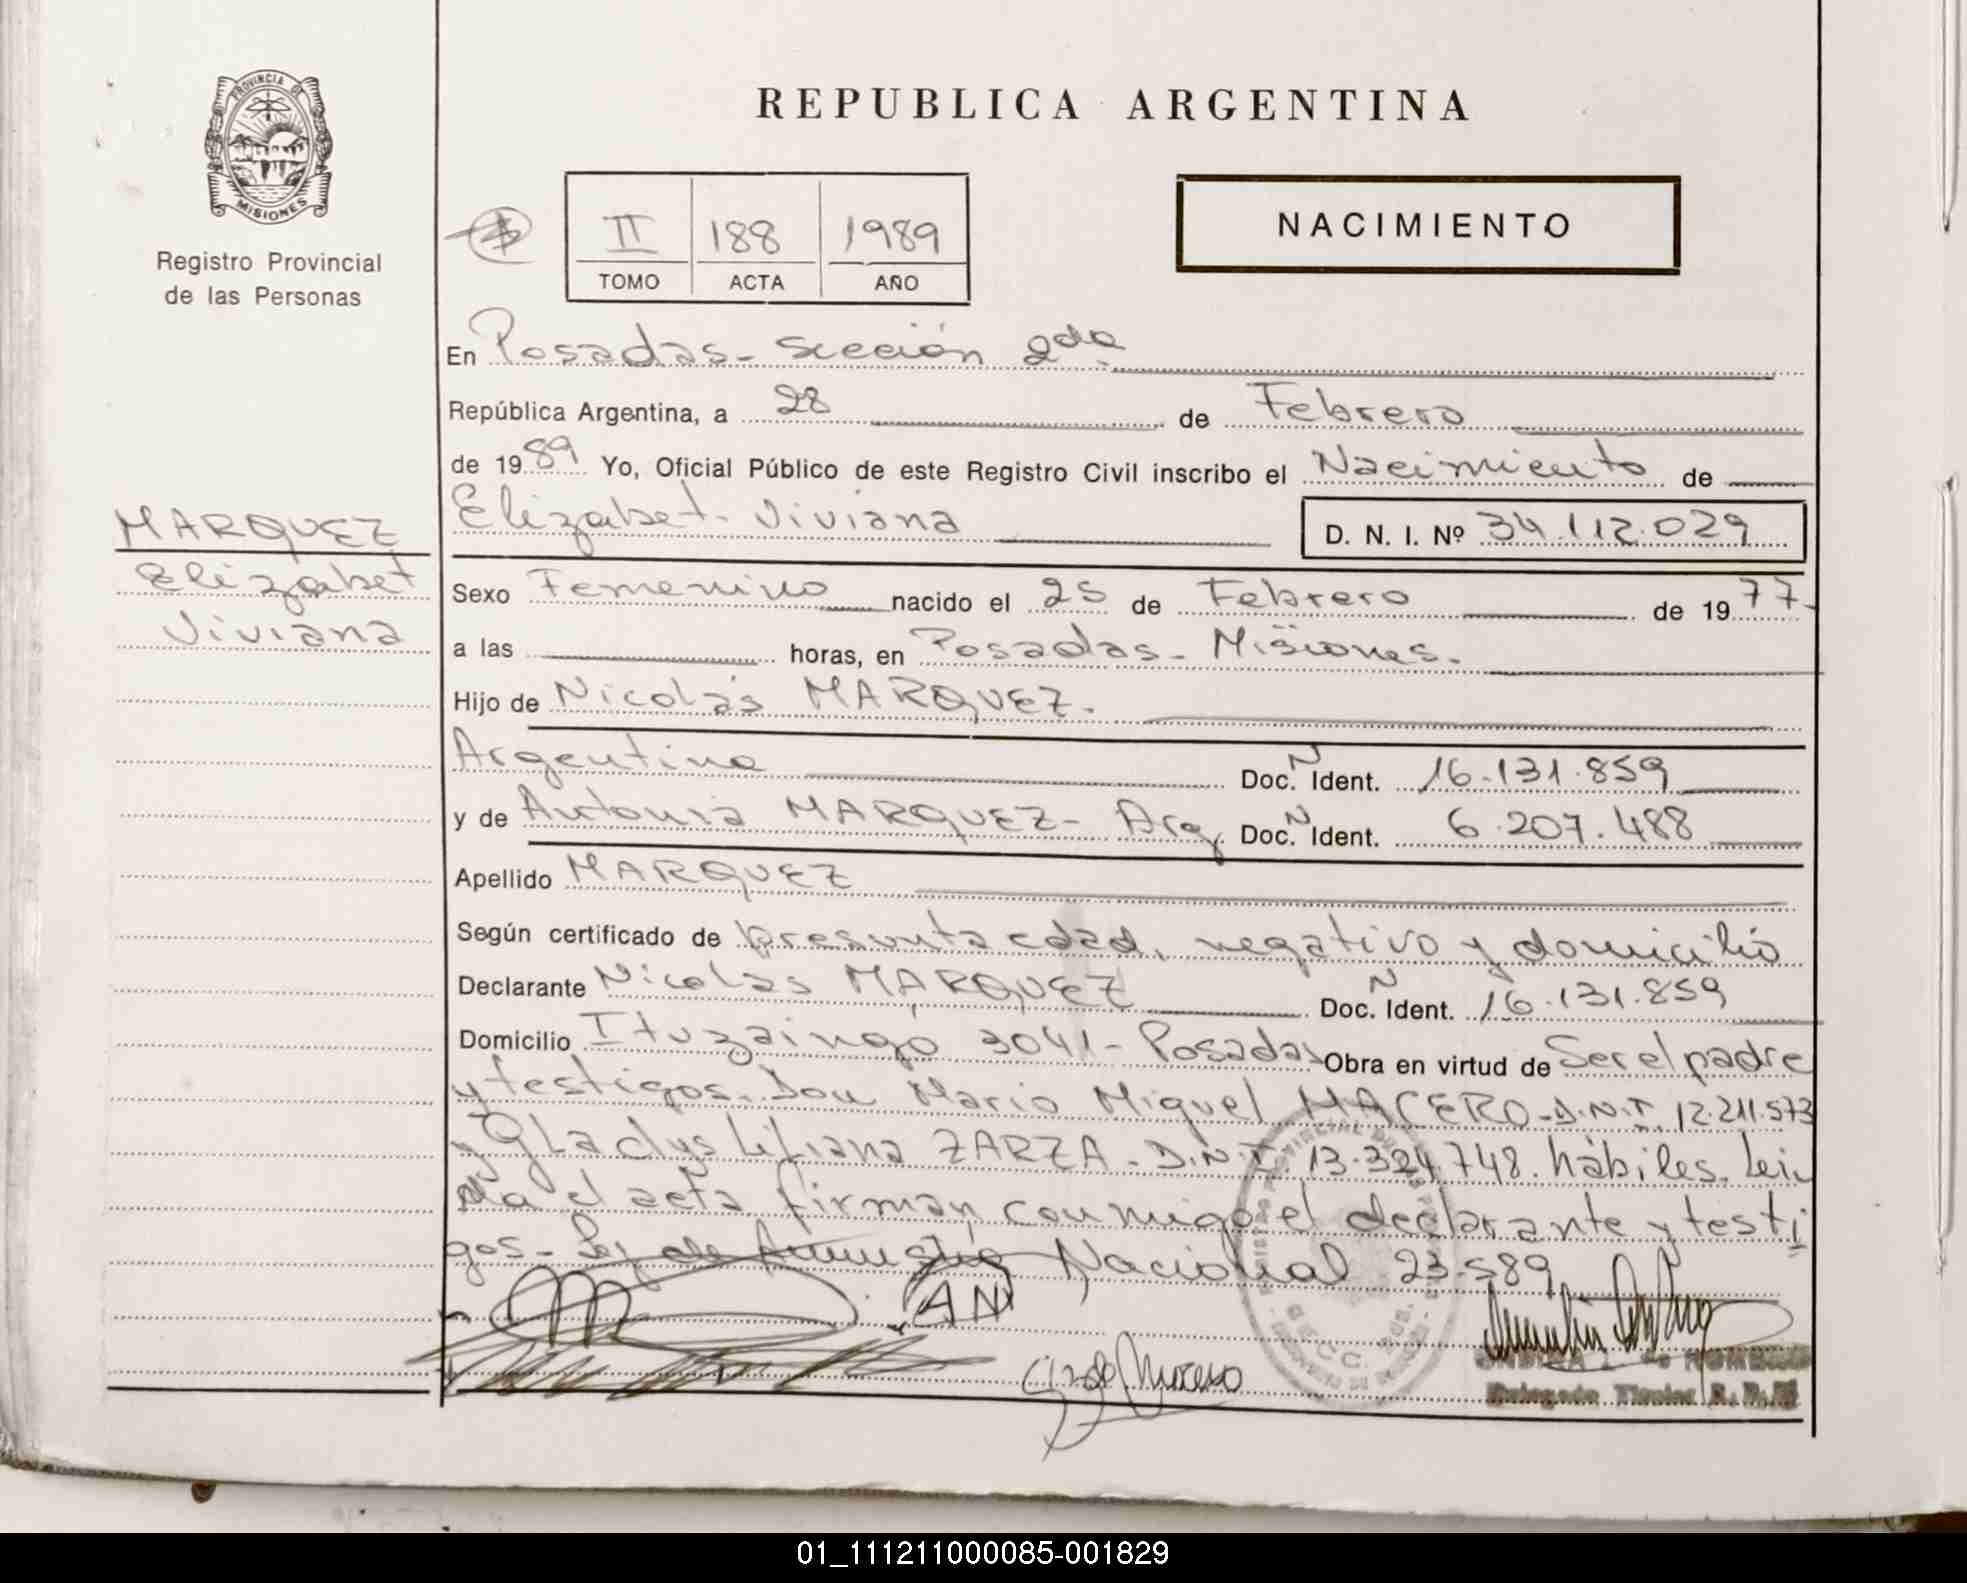 PROVINCIA DE
MISIONES
Registro Provincial
de las Personas
REPUBLICA ARGENTINA
II 188 1989
TOMO ACTA AÑO
NACIMIENTO
En Posadas - Sección 2da
República Argentina, a 28 de Febrero
de 1989 Yo, Oficial Público de este Registro Civil inscribo el Nacimiento de
Elizabet Viviana D. N. I. Nº 34.112.029
MARQUEZ
Elizabet
Viviana
Sexo Femenino nacido el 25 de Febrero de 1977-
a las horas, en Posadas - Misiones.
Hijo de Nicolás MARQUEZ.
Argentino Doc. N Ident. 16.131.859
y de Antonia MARQUEZ - Arg. Doc. N Ident. 6.207.488
Apellido MARQUEZ
Según certificado de presunta edad, negativo y domicilio
Declarante Nicolás MARQUEZ Doc. N Ident. 16.131.859
Domicilio Ituzaingó 3041 - Posadas Obra en virtud de Ser el padre
y testigos. Don Mario Miguel MACERO - D.N.I. 12.211.573
y Gladys Liliana ZARZA - D.N.I. 13.324.748. hábiles. Leí
da el acta firman conmigo el declarante y testi
gos - Ley de Amnistía Nacional 23.589
AN
Delegada Titular R. P. P.
01_111211000085-001829